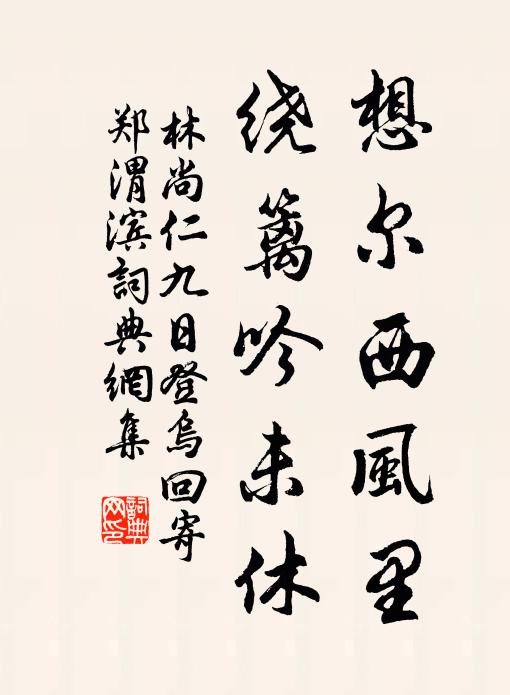 想尔西風里
绕篱吟未休
林尚仁九日登乌回寄
郑渭滨詞典網集
詞典
网印